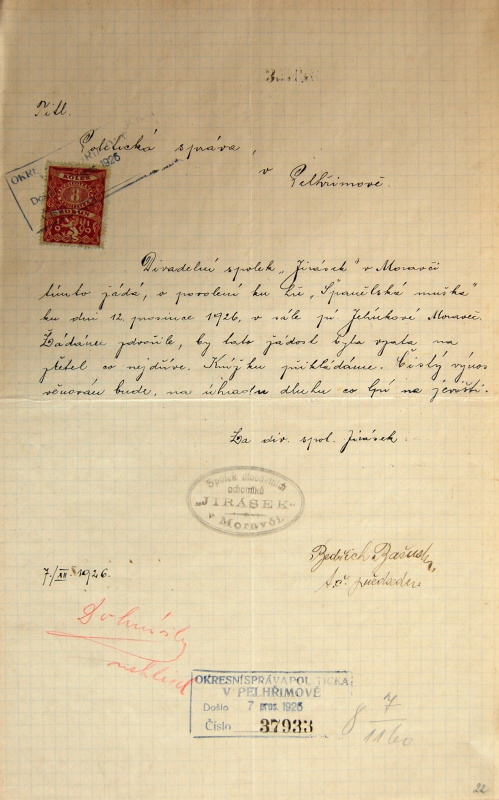 Titl.
Politická správa,
v
Pelhřimově.
KOLEK
8
KORUN
1919
Divadelní spolek „Jirásek" v Moravči
tímto žádá, o povolení ku hře „Španělská muška"
ku dni 12. prosince 1926, v sále pí Jelínkové Moraveč.
Žádáme zdvořile, by tato žádost byla vzata na
zřetel co nejdříve. Knížku přikládáme. Čistý výnos
věnován bude, na úhradu dluhu co lpí na jevišti.
Za div. spol. Jirásek
Spolek divadelních
ochotníků
„JIRÁSEK"
v Moravči.
Bedřich
t.č. předseda
7./XII 1926.
OKRESNÍ SPRÁVA POLITICKÁ
V PELHŘIMOVĚ
Došlo 7 pros. 1926
Číslo 37933
8 7
1160
22